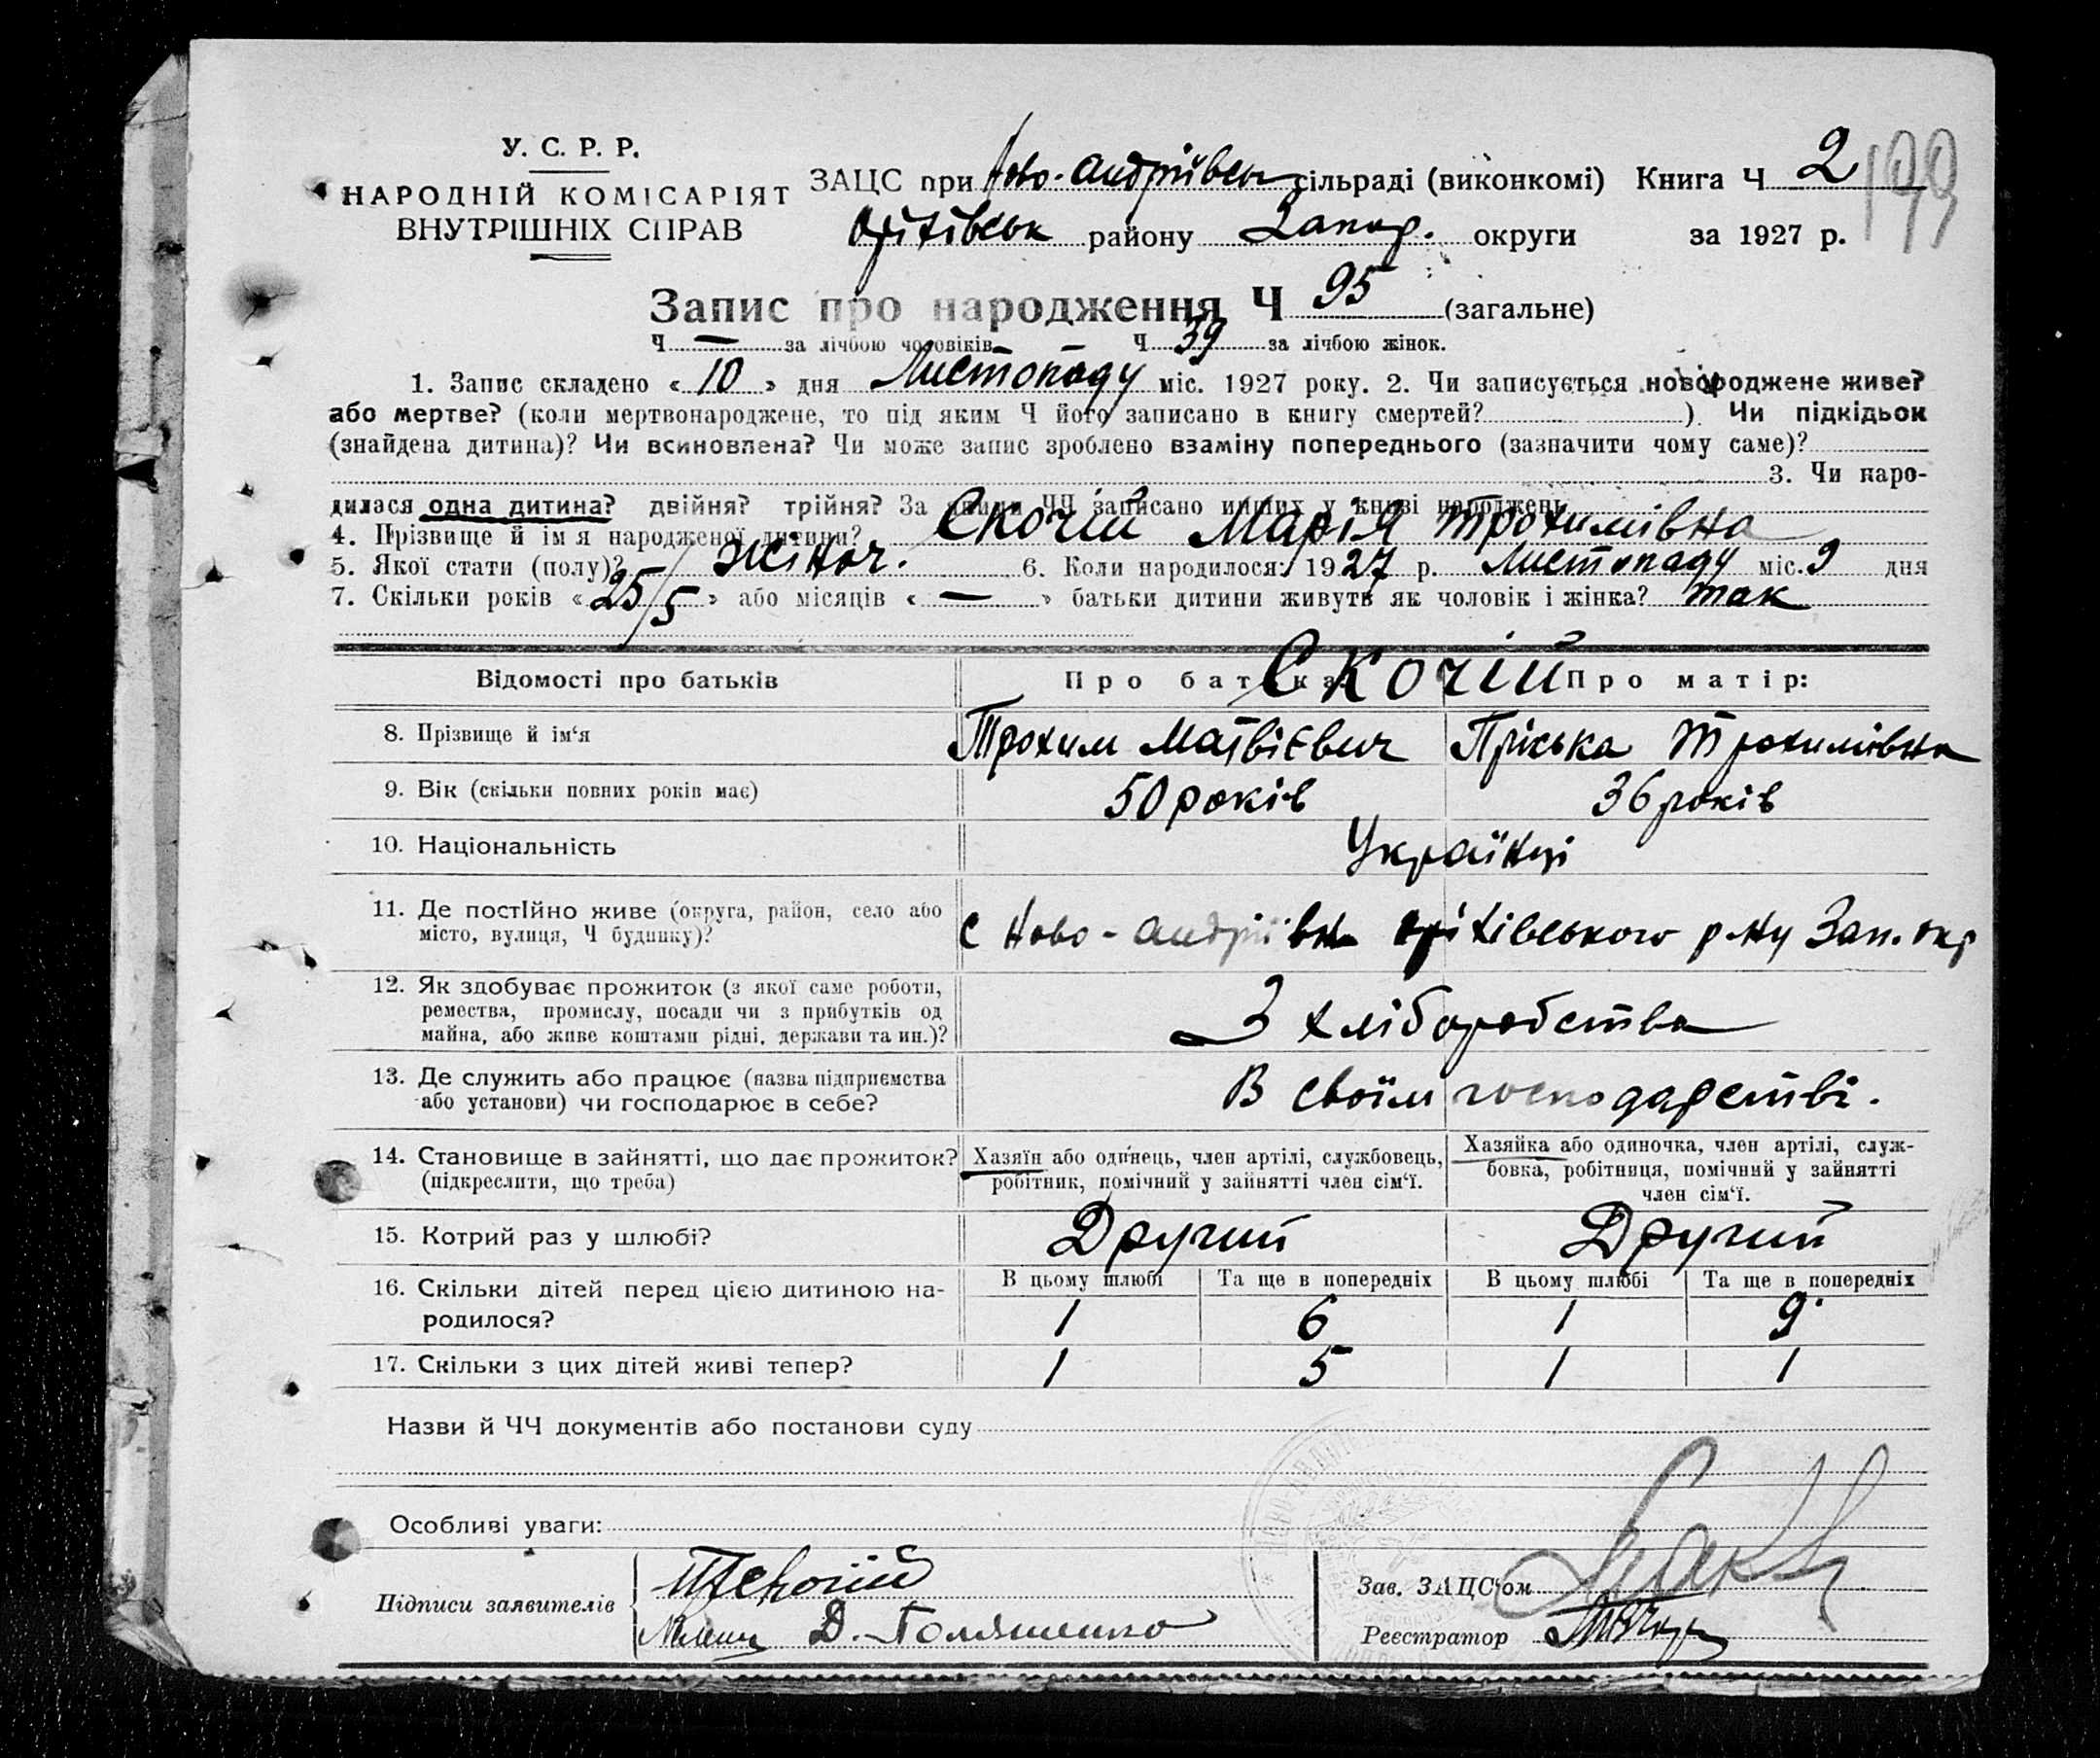 У. С. Р. Р.
НАРОДНІЙ КОМІСАРІЯТ
ВНУТРІШНІХ СПРАВ
ЗАЦС при Ново-Андріївськ сільраді (виконкомі) Книга Ч 2
199
Оріхівськ району Запор. округи за 1927 р.
Запис про народження Ч 95 (загальне)
Ч — за лічбою чоловіків Ч 39 за лічбою жінок.
1. Запис складено «10» дня Листопаду міс. 1927 року. 2. Чи записується новороджене живе?
або мертве? (коли мертвонароджене, то під яким Ч його записано в книгу смертей? ). Чи підкідьок
(знайдена дитина)? Чи всиновлена? Чи може запис зроблено взаміну попереднього (зазначити чому саме)?
3. Чи наро-
дилася одна дитина? двійня? трійня? За якими ЧЧ записано инших у книзі народжень
4. Прізвище й ім'я народженої дитини? Скочій Марія Трохимівна
5. Якої стати (полу)? жіноч. 6. Коли народилося: 1927 р. Листопаду міс. 9 дня
7. Скільки років «25/5» або місяців «—» батьки дитини живуть як чоловік і жінка? так
Відомості про батьків Про батька: Скочій Про матір:
8. Прізвище й ім'я Трохим Матвієвич Пріська Трохимівна
9. Вік (скільки повних років має) 50 років 36 років
10. Національність Українці
11. Де постійно живе (округа, район, село або
місто, вулиця, Ч будинку)? с Ново-Андріївк Оріхівського р-ну Зап. окр
12. Як здобуває прожиток (з якої саме роботи,
ремества, промислу, посади чи з прибутків од
майна, або живе коштами рідні, держави та ин.)? З хліборобства
13. Де служить або працює (назва підприємства
або установи) чи господарює в себе? В своїм господарстві.
14. Становище в зайнятті, що дає прожиток?
(підкреслити, що треба)
Хазяїн або одинець, член артілі, службовець,
робітник, помічний у зайнятті член сім'ї.
Хазяйка або одиночка, член артілі, служ-
бовка, робітниця, помічний у зайнятті
член сім'ї.
15. Котрий раз у шлюбі? Другий Другий
В цьому шлюбі Та ще в попередніх В цьому шлюбі Та ще в попередніх
16. Скільки дітей перед цією дитиною на-
родилося? 1 6 1 9
17. Скільки з цих дітей живі тепер? 1 5 1 1
Назви й ЧЧ документів або постанови суду
Особливі уваги:
Підписи заявителів
Скочій
Д. Голяшенко
Зав. ЗАЦС'ом
Реєстратор